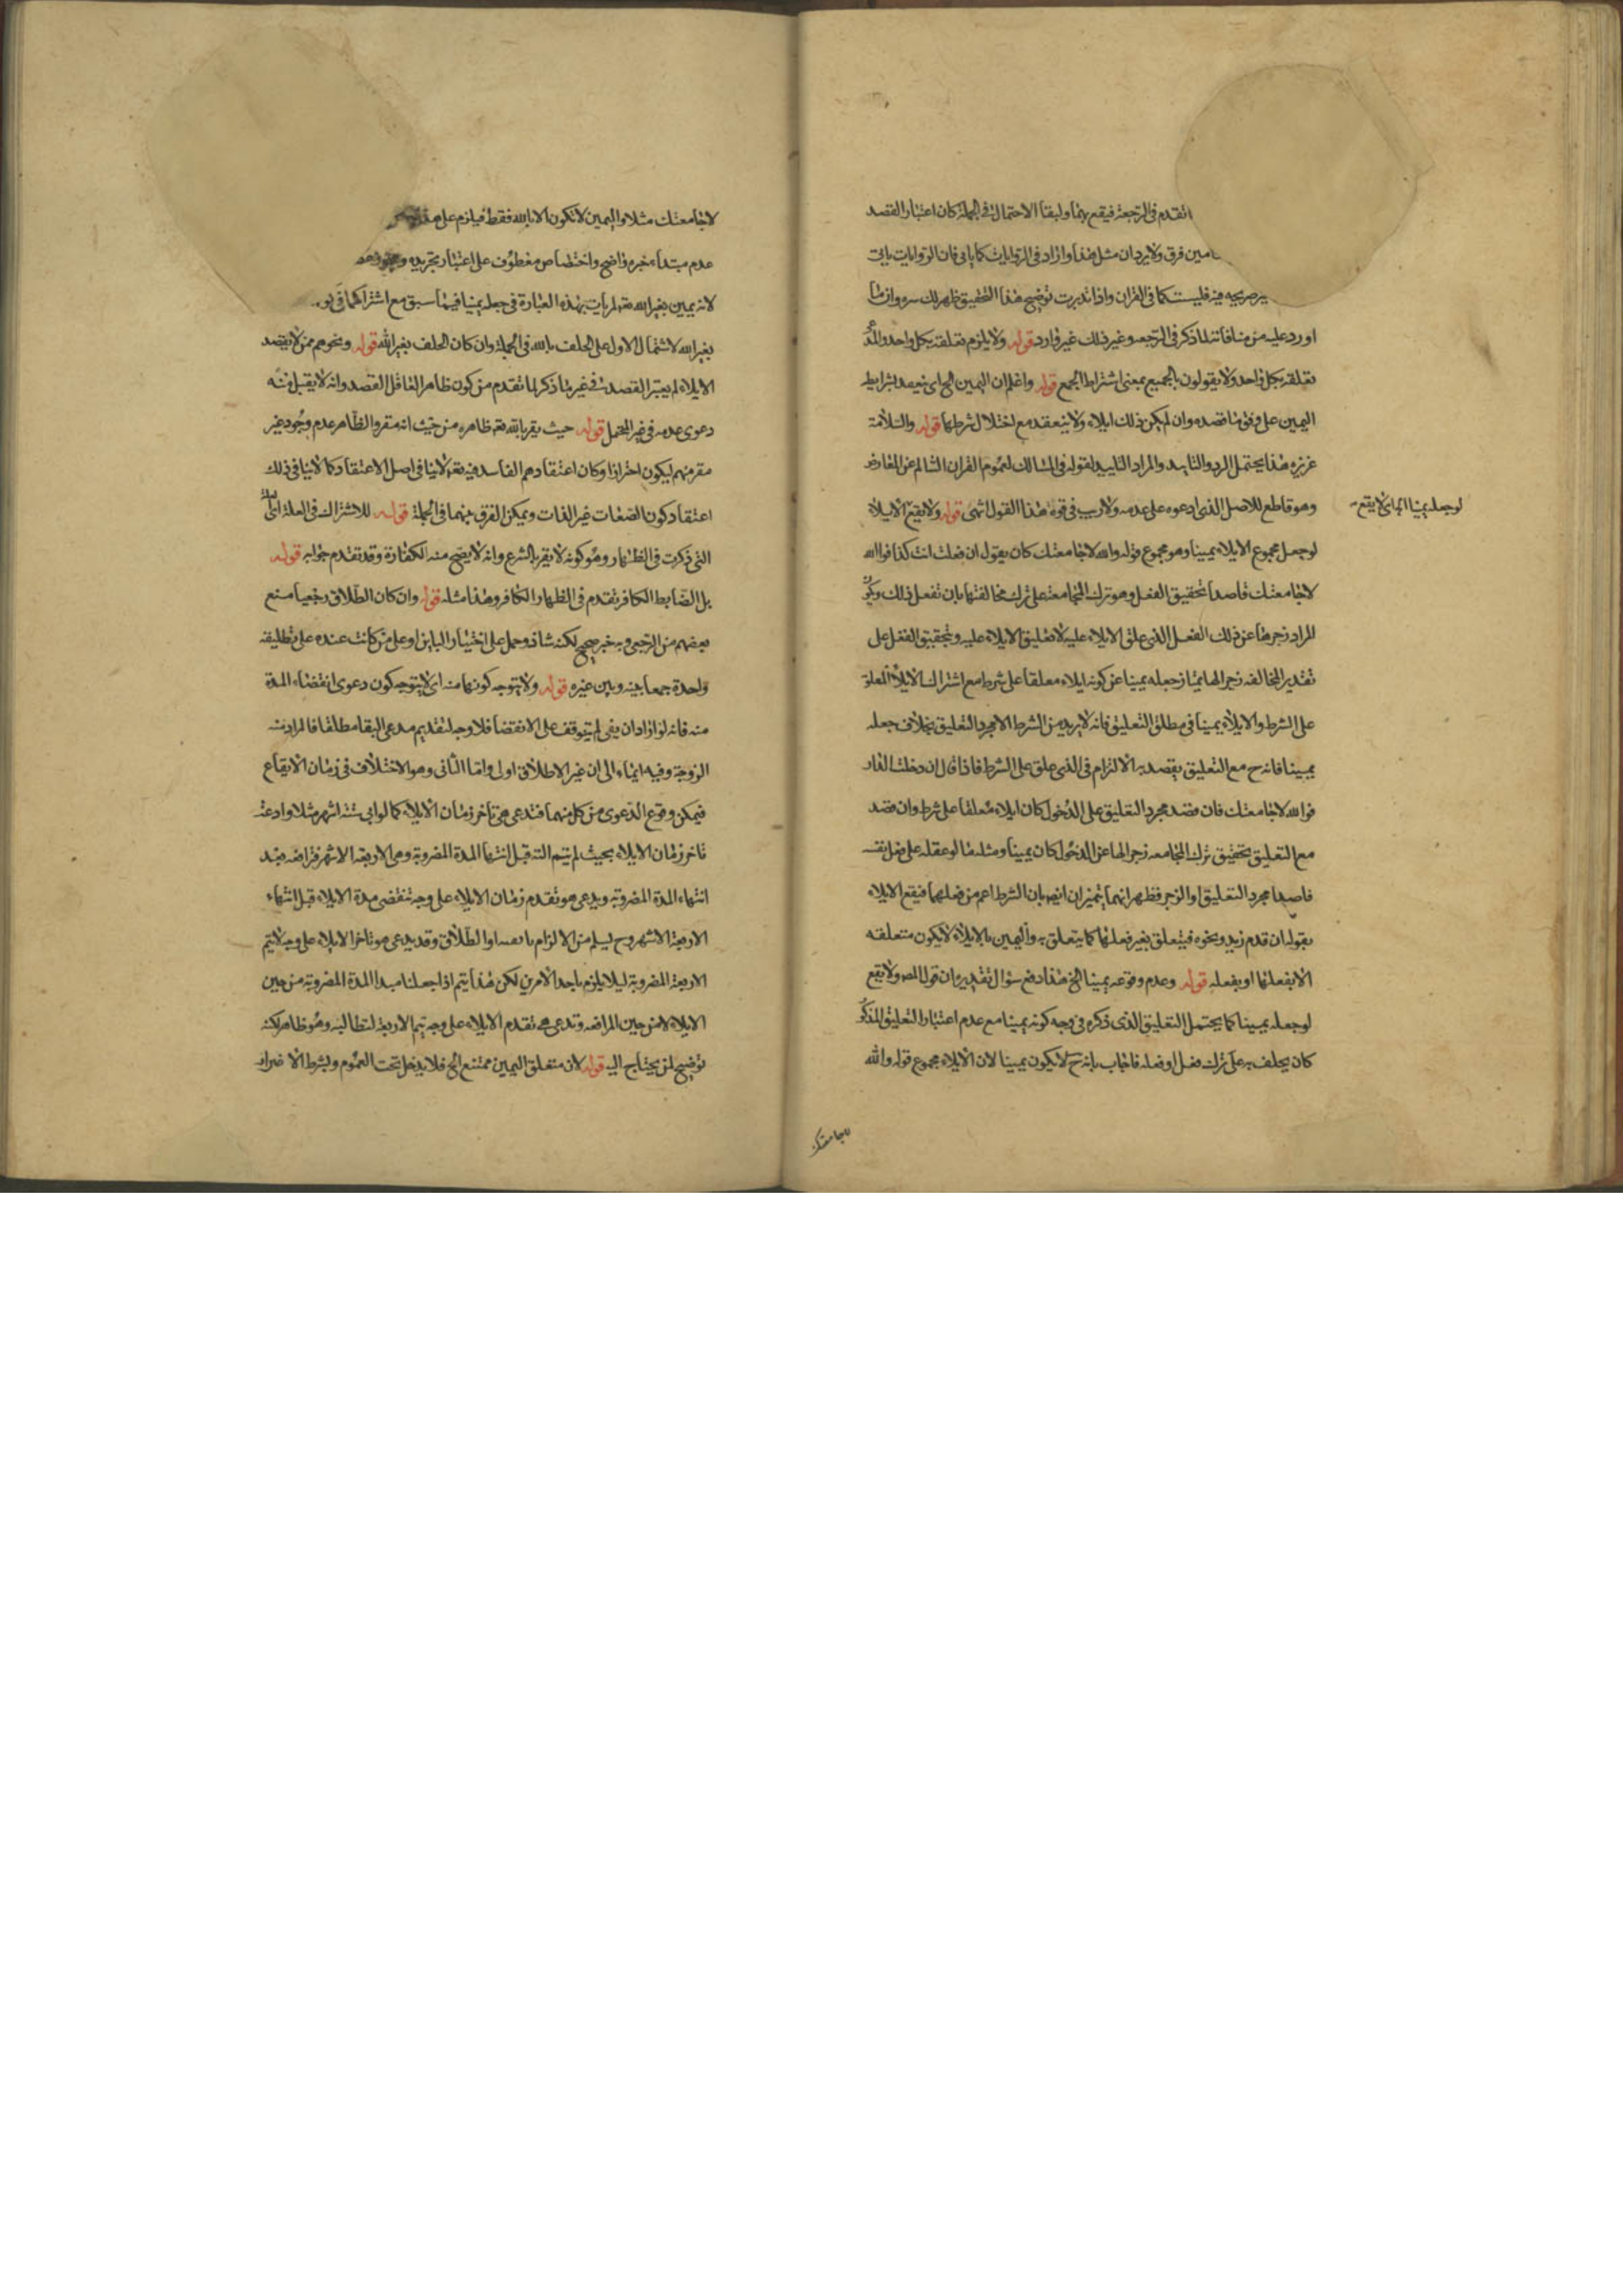 تقدم فى الرجعة فيقع بهما ولبقاء الاحتمال فى الجملة كان اعتبار القصد
فرق ولا يرد ان مثل هذا وارد فى الروايات كما ياتى فان الروايات ياتى
فيه فليست كما فى القران واذا تدبرت توضيح هذا التحقيق ظهر لك سره وان ما
اورد عليه من منافاته لما ذكر فى الرجعه وغير ذلك غير وارد قوله ولا يلزم تعلقه بكل واحد
تعلقه بكل واحد ولا يقولون بالجميع بمعنى اشتراط الجمع قوله واعلم ان اليمين الخ اى ينعقد بشرايط
اليمين على وفق ما قصده وان لم يكن ذلك ايلاء ولا ينعقد مع اختلال شرطها قوله والسلامة
غزيرة هذا يحتمل الرد والتاييد والمراد التاييد لقوله فى المسالك لعموم القران السالم عن المعارض
وهو قاطع للاصل الذى ادعوه على عدمه ولا ريب فى قوة هذا القول انتهى قوله ولا يقع الايلاء
لو جعله يمينا اى لا يقع
لو جعل مجموع الايلاء يمينا وهو مجموع قوله والله لاجامعتك كان يقول ان فعلت كذا فوالله
لاجامعتك قاصدا تحقيق الفعل وهو ترك المجامعة على ترك مخالفتها بان تفعل ذلك
المراد زجرها عن ذلك الفعل الذى علق الايلاء عليه لا تعليق الايلاء عليه وتحقيق الفعل على
تقدير المخالفه زجرا لها يمتاز جعله يمينا عن كونه ايلاء معلقا على شرط مع اشتراك الايلاء المعلق
على الشرط والايلاء يمينا فى مطلق التعليق فانه لا يريد من الشرط الا مجرد التعليق بخلاف جعله
يمينا فانه ح مع التعليق يقصد به الالتزام فى الذى علق على الشرط فاذا قال ان دخلت الدار
فوالله لاجامعتك فان قصد مجرد التعليق على الدخول كان ايلاء معلقا على شرط وان قصد
مع التعليق تحقيق ترك المجامعه زجرا لها عن الدخول كان يمينا ومثله ما لو علقه على فعل نفسه
قاصدا مجرد التعليق او الزجر فظهر انهما يتميزان ايضا بان الشرط اعم من فعلهما فيقع الايلاء
بقوله ان قدم زيد ونحوه فيتعلق بغير فعلهما كما يتعلق به واليمين بالايلاء لا يكون متعلقه
الا بفعلها او بفعله قوله وعدم وقوعه يمينا الخ هذا دفع سؤال تقديره ان قول المص ولا يقع
لو جعله يمينا كما يحتمل التعليق الذى ذكره فى وجه كونه يمينا مع عدم اعتبار التعليق المذكور
كان يحلف به على ترك فعل او فعله فاجاب بانه ح لا يكون يمينا لان الايلاء مجموع قوله والله
لاجامعتك
لاجامعتك مثلا واليمين لا تكون الا بالله فقط فيلزم على
عدم مبتداء خبره واضح واختصاص معطوف على اعتبار تجريده
لانه يمين بغير الله نعم لم يات بهذه العبارة فى جعله يمينا فيما سبق مع اشتراكهما فى
بغير الله لاشتمال الاول على الحلف بالله فى الجملة وان كان الحلف بغير الله قوله ونحوهم ممن لا يقصد
الايلاء لم يعتبر القصد فى غير ما ذكر لما تقدم من كون ظاهر العاقل القصد وانه لا يقبل منه
دعوى عدمه فى غير المحتمل قوله حيث يقر بالله نعم ظاهره من حيث انه مقر والظاهر عدم وجود غير
مقر منهم ليكون احترازا وكان اعتقادهم الفاسد فيه نعم لا ينافى اصل الاعتقاد كما لا ينافى ذلك
اعتقاد كون الصفات غير الذات ويمكن الفرق بينهما فى الجملة قوله للاشتراك فى العلة
التى ذكرت فى الظهار وهو كونه لا يقر بالشرع وانه لا يصح منه الكفارة وقد تقدم جوابه قوله
بل الضابط الكافر تقدم فى الظهار الكافر وهذا مثله قوله وان كان الطلاق رجعيا منع
بعضهم من الرجعى وبه خبر صحيح لكنه شاذ وحمل على اختيار الباين او على من كانت عنده على تطليقه
واحدة جمعا بينه وبين غيره قوله ولا يتوجه كونها منه اى لا يتوجه كون دعوى انقضاء المدة
منه فانه لو اراد ان يفى لم يتوقف على الانقضا فلا وجه لتقديم مدعى البقا مطلقا فالمراد منه
الزوجة وفيه ايماء الى ان غير الاطلاق اولى واما الثانى وهو الاختلاف فى زمان الايقاع
فيمكن وقوع الدعوى من كل منهما فتدعى هى تاخر زمان الايلاء كما لو الى ستة اشهر مثلا وادعت
تاخر زمان الايلاء بحيث لم يتم الستة قبل انتهاء المدة المضروبة وهى الاربعة الاشهر فترافعه بعد
انتهاء المدة المضروبه ويدعى هو تقدم زمان الايلاء على وجه تنقضى مدة الايلاء قبل انتهاء
الاربعة الاشهر وح ليسلم من الالزام او الطلاق وقد يدعى هو تاخر الايلاء على وجه لا يتم
الاربعة المضروبة ليلا يلزم باحد الامرين لكن هذا يتم اذا جعلنا مبدا المدة المضروبة من حين
الايلاء لا من حين المرافعه وتدعى هى تقدم الايلاء على وجه يتم الاربعة لتطالبه وهو ظاهر لكنه
توضيح لمن يحتاج اليه قوله لان متعلق اليمين ممتنع الخ فلا يدخل تحت العموم وبشرط الاضرار